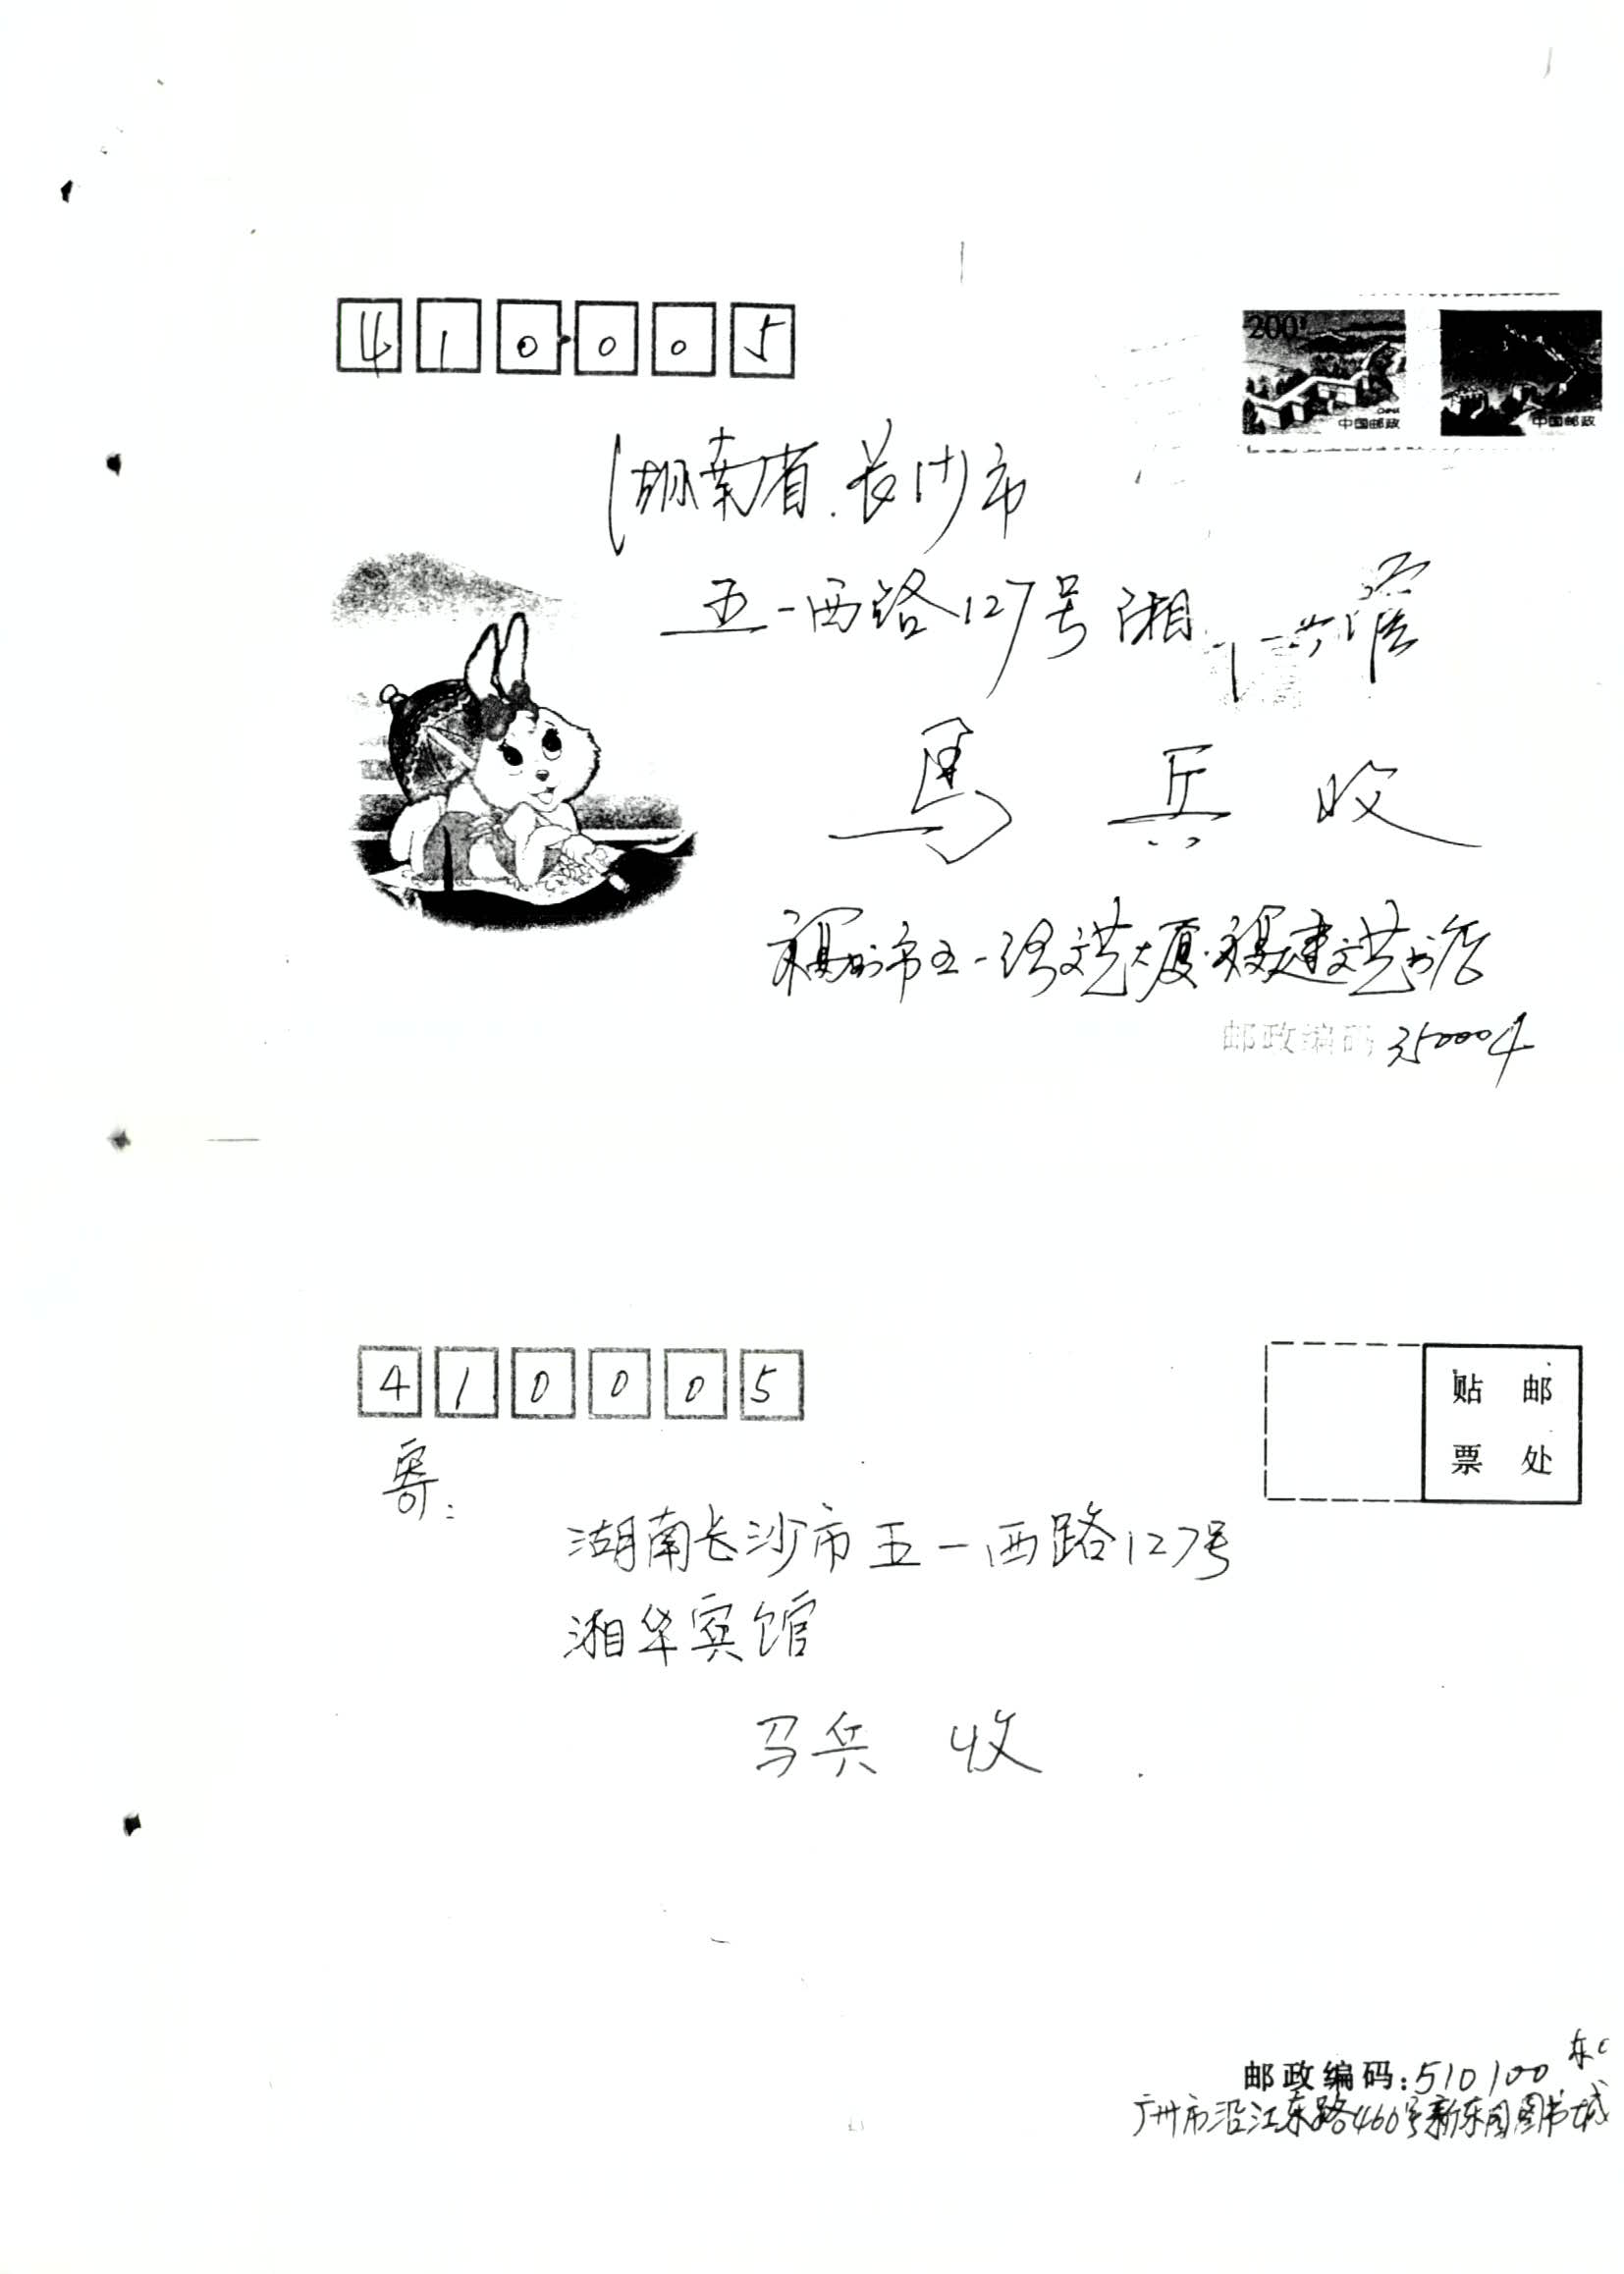 410005
200
CHINA
中国邮政
中国邮政
湖南省.长沙市
五一西路127号湘
馬兵收
福州市五一路文艺大厦.福建文艺书店
邮政编码 350004
410005
贴邮
票处
寄:
湖南长沙市五一西路127号
湘华宾馆
马兵 收
邮政编码:510100
广州市沿江东路460号新东园图书城